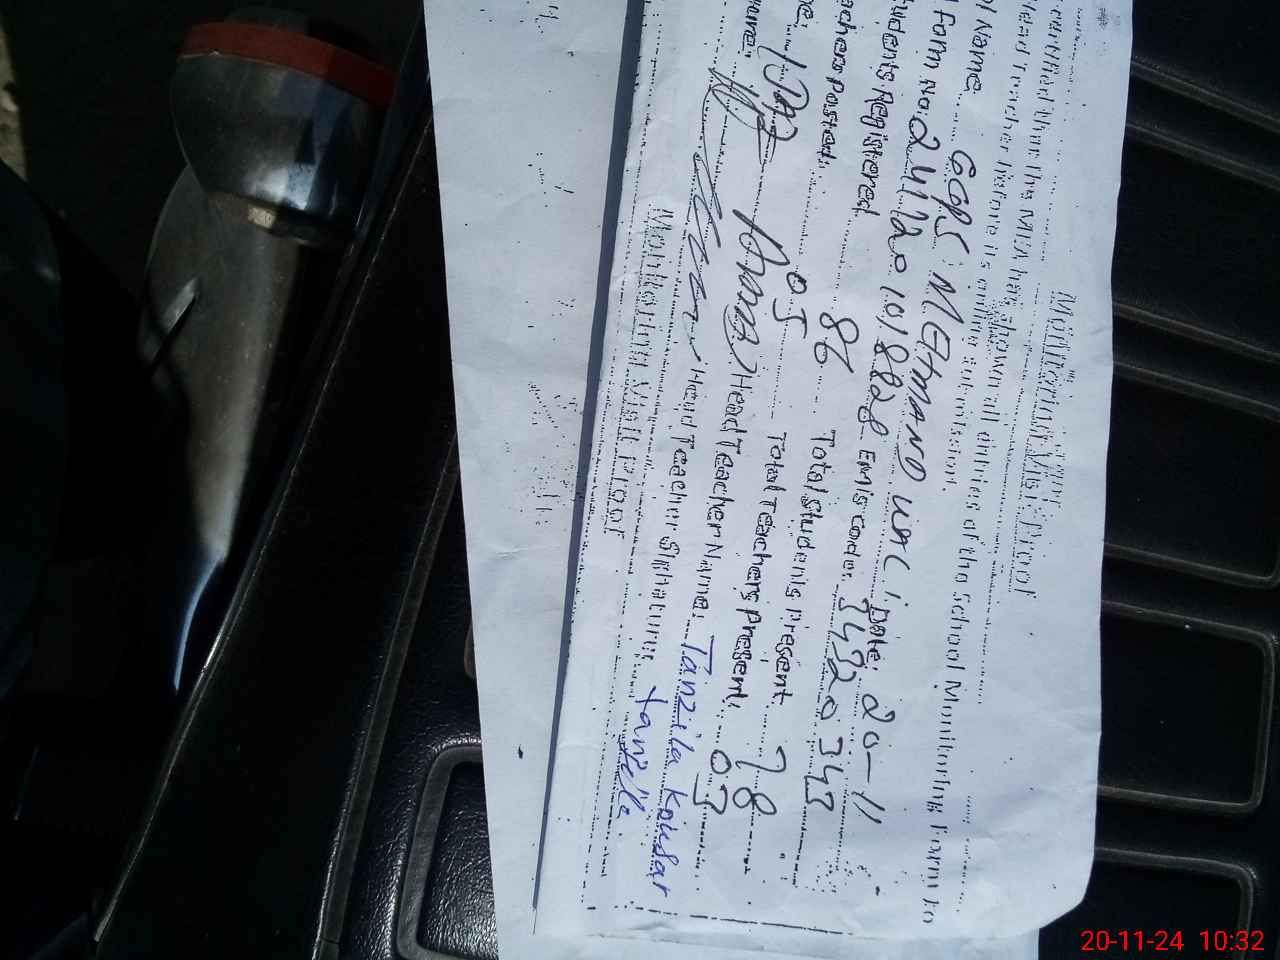 Monitoring Visit Proof
certified that the MEA has shown all entries of the School Monitoring Form to
Head Teacher before its online submission.
Name GGPS MEHMAND
Form No. 2411201018828 Date: 20-11
Students Registered 86 Emis code: 34320343
Teachers Posted: 05 Total Students Present 78
Total Teachers Present: 03
Head Teacher Name: Tanzila Kousar
Head Teacher Signature:
Monitoring Visit Proof
20-11-24 10:32